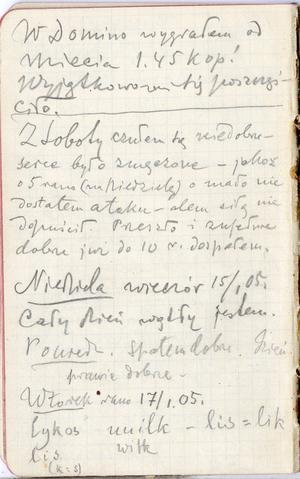 W Domino wygrałem od
Miecia 1.45 kop!
Wyjątkowo mi się poszczęś-
ciło.
Z Soboty czułem się niedobrze –
serce było zmęczone – jakoż
o 5 rano (na Niedzielę) o mało nie
dostałem ataku – alem siłą nie
dopuścił. Przeszło i zupełnie
dobrze już do 10 r. dospałem.
Niedziela wieczór 15/1, 05.
Cały dzień względ jestem.
Poniedz. Spałem dobrze. Dzień
prawie dobrze –
Wtorek rano 17/1, 05.
Lykos wilk – lis = lik
lis witk
(k=s)